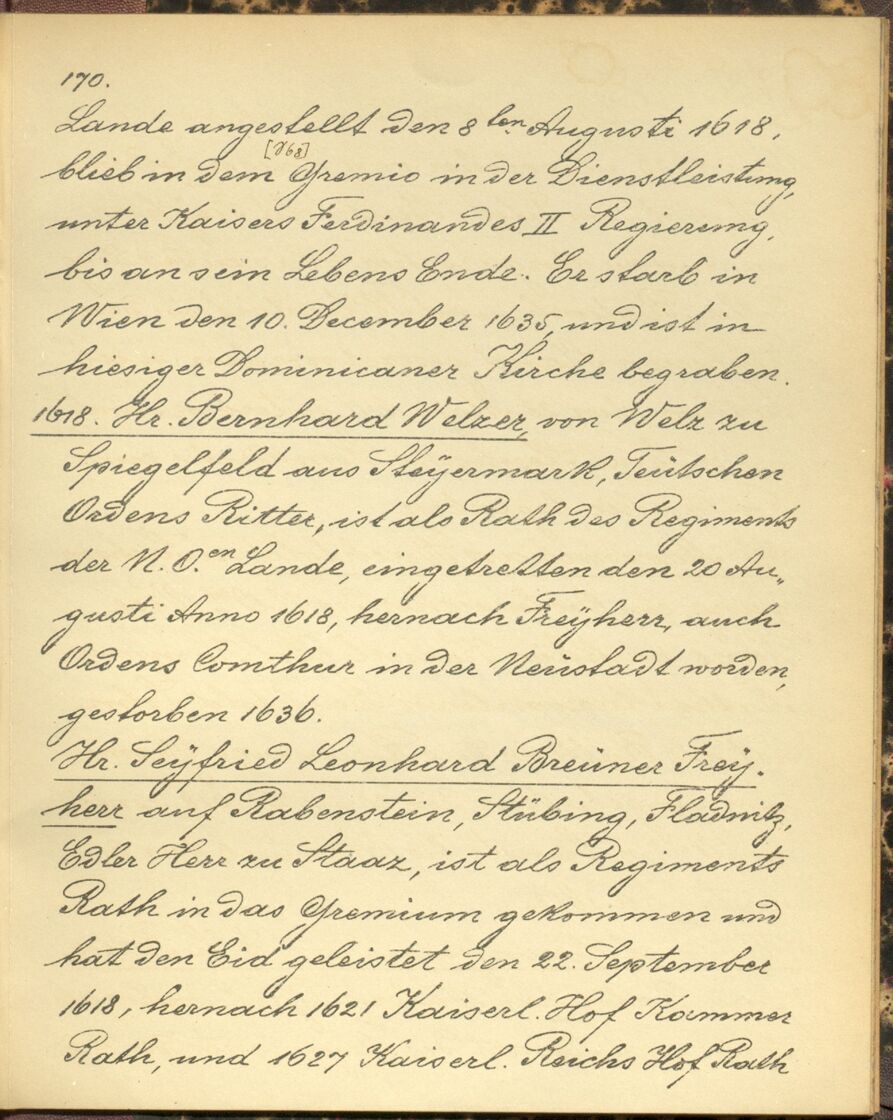 170.
Lande angestellt den 8 ten Augusti 1618,
[768]
blieb in dem Gremio in der Dienstleistung,
unter Kaisers Ferdinandes II Regierung,
bis an sein Lebens Ende. Er starb in
Wien den 10. December 1635, und ist in
hiesiger Dominicaner Kirche begraben.
1618. Hr. Bernhard Welzer, von Welz zu
Spiegelfeld aus Steÿermark, Teütschen
Ordens Ritter, ist als Rath des Regiments
der N. O.en Lande, eingetretten den 20 Au„
gusti Anno 1618, hernach Freÿherr, auch
Ordens Comthur in der Neüstadt worden,
gestorben 1636.
Hr. Seÿfried Leonhard Breüner Freÿ-
herr auf Rabenstein, Stübing, Fladnitz,
Edler Herr zu Staaz, ist als Regiments
Rath in das Gremium gekommen und
hat den Eid geleistet den 22. September
1618, hernach 1621 Kaiserl. Hof Kammer
Rath, und 1627 Kaiserl. Reichs Hof Rath